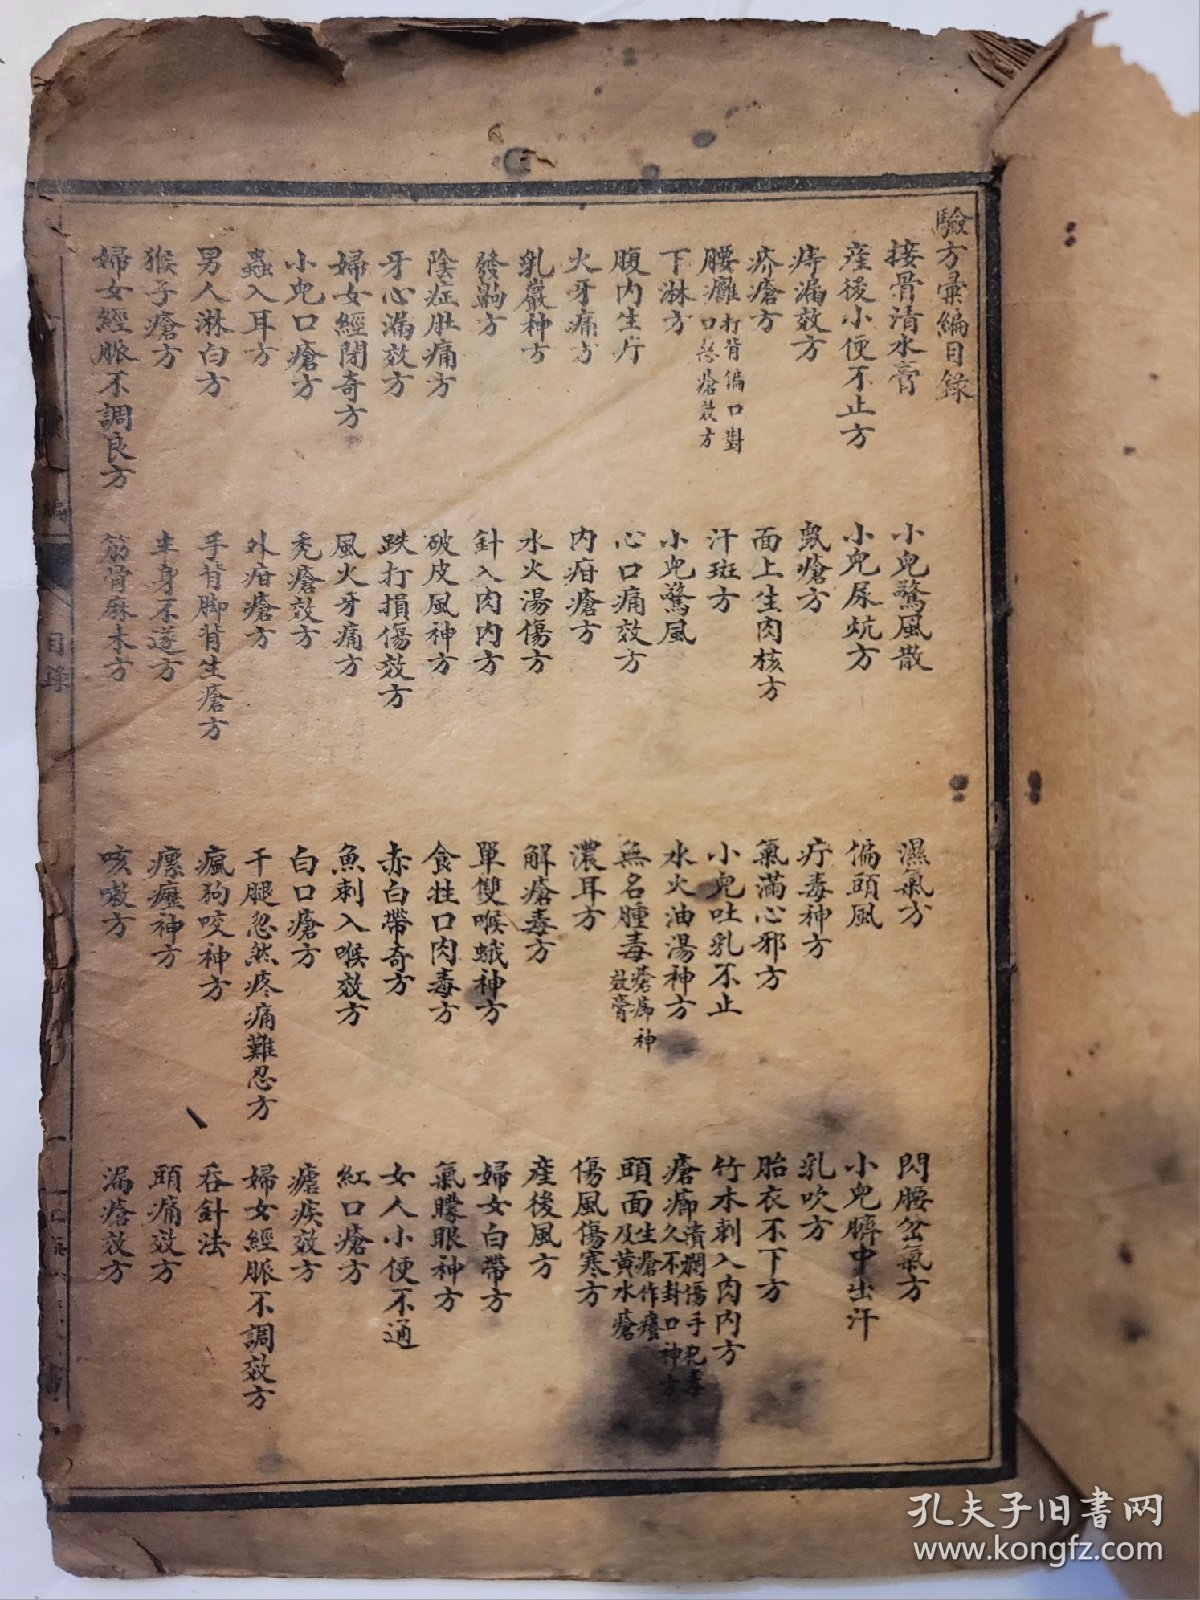 驗方彙編目錄
接骨清水膏 小兒驚風散 濕氣方 閃腰岔氣方
產後小便不止方 小兒尿炕方 偏頭風 小兒臍中出汗
痔漏效方 敦瘡方 疔毒神方 乳吹方
疥瘡方 面上生肉核方 氣滿心邪方 胎衣不下方
腰癰打背偏口對口惡瘡效方 汗斑方 小兒吐乳不止 竹木刺入肉內方
下淋方 小兒驚風 水火油湯神方 瘡癤潰爛傷手皰毒久不封口神方
腹內生疔 心口痛效方 無名腫毒瘡癤神效膏 頭面生瘡作癢及黃水瘡
火牙痛方 內疳瘡方 濃耳方 傷風傷寒方
乳巖神方 水火湯傷方 解瘡毒方 產後風方
發齁方 針入肉內方 單雙喉蛾神方 婦女白帶方
陰症肚痛方 破皮風神方 食牲口肉毒方 氣矇眼神方
牙心漏效方 跌打損傷效方 赤白帶奇方 女人小便不通
婦女經閉奇方 風火牙痛方 魚刺入喉效方 紅口瘡方
小兒口瘡方 禿瘡效方 白口瘡方 瘧疾效方
蟲入耳方 外疳瘡方 干腿忽然疼痛難忍方 婦女經脈不調效方
男人淋白方 手背脚背生瘡方 瘋狗咬神方 吞針法
猴子瘡方 半身不遂方 瘰癧神方 頭痛效方
婦女經脈不調良方 筋骨麻木方 咳嗽方 漏瘡效方
編 目錄
孔夫子旧书网
www.kongfz.com